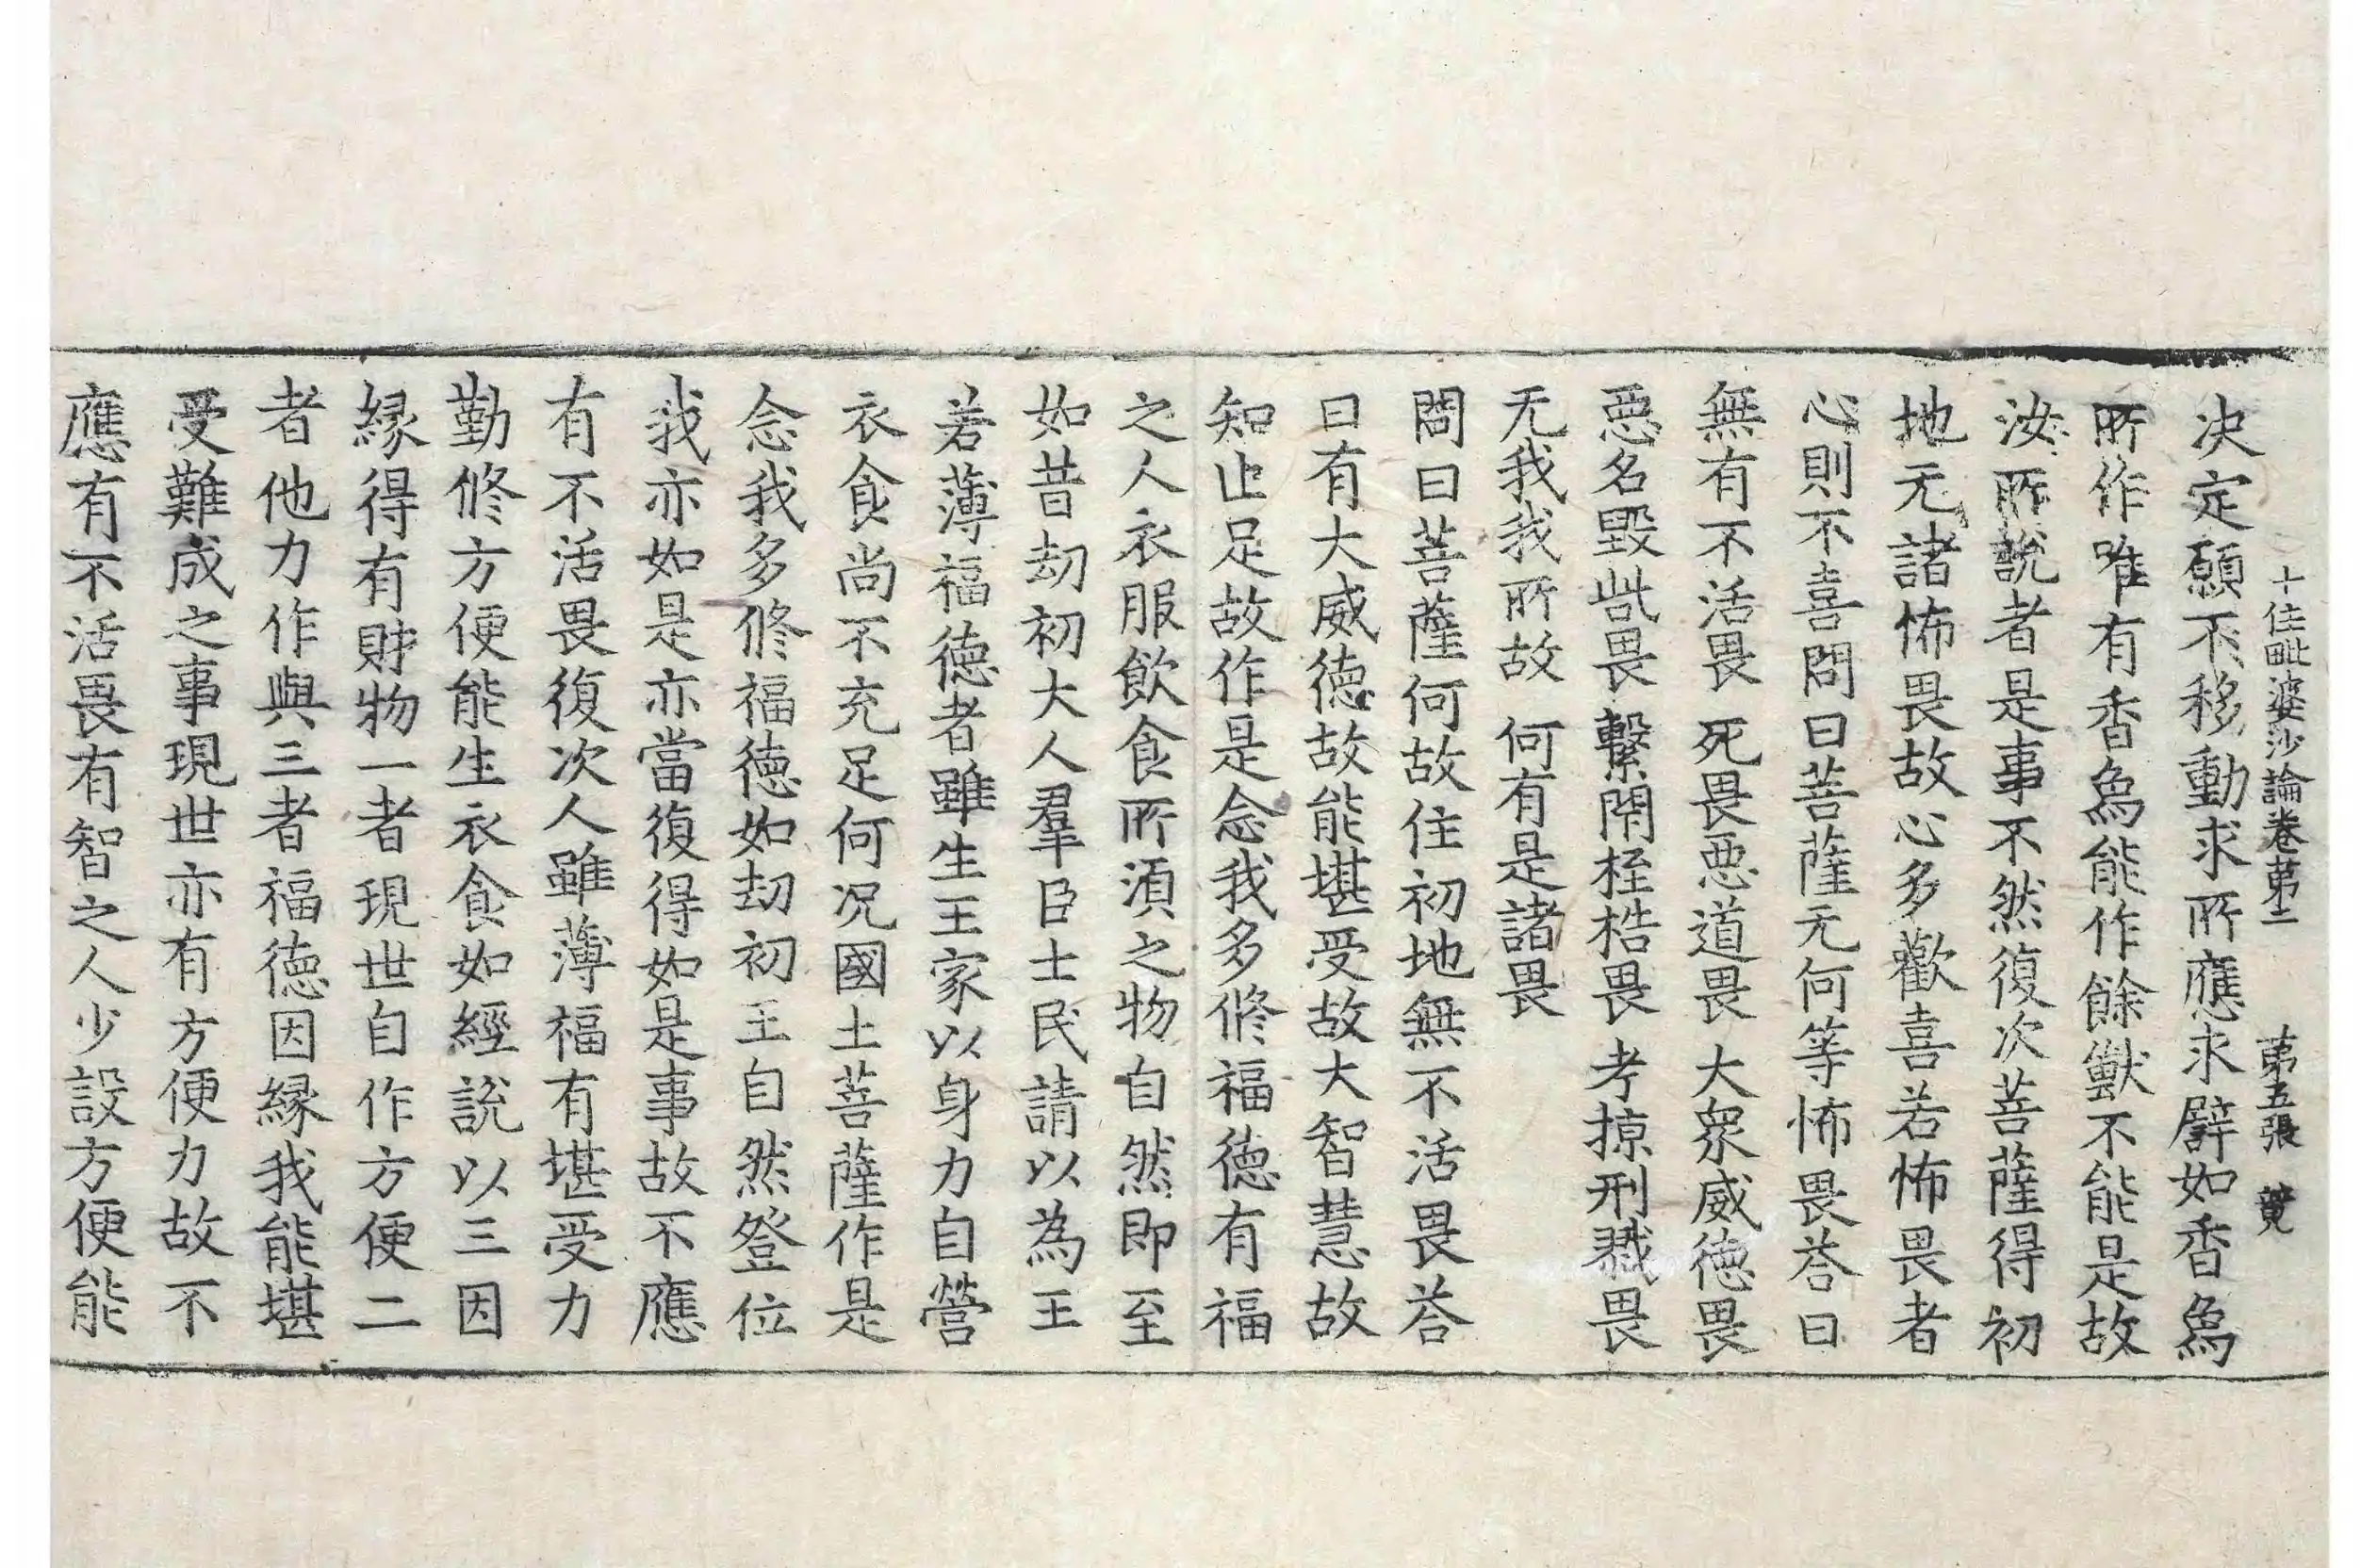 十住毗婆沙論卷第二 第五張 竟
决定願不移動求所應求譬如香象
所作唯有香象能作餘獸不能是故
汝所說者是事不然復次菩薩得初
地无諸怖畏故心多歡喜若怖畏者
心則不喜問曰菩薩无何等怖畏荅曰
無有不活畏 死畏惡道畏 大衆威德畏
惡名毀呰畏 繫閇桎梏畏 考掠刑戮畏
无我我所故 何有是諸畏
問曰菩薩何故住初地無不活畏荅
曰有大威德故能堪受故大智慧故
知止足故作是念我多修福德有福
之人衣服飲食所湏之物自然即至
如昔劫初大人羣臣士民請以為王
若薄福德者雖生王家以身力自營
衣食尚不充足何况國土菩薩作是
念我多修福德如劫初王自然登位
我亦如是亦當復得如是事故不應
有不活畏復次人雖薄福有堪受力
勤修方便能生衣食如經說以三因
緣得有財物一者現世自作方便二
者他力作與三者福德因緣我能堪
受難成之事現世亦有方便力故不
應有不活畏有智之人少設方便能